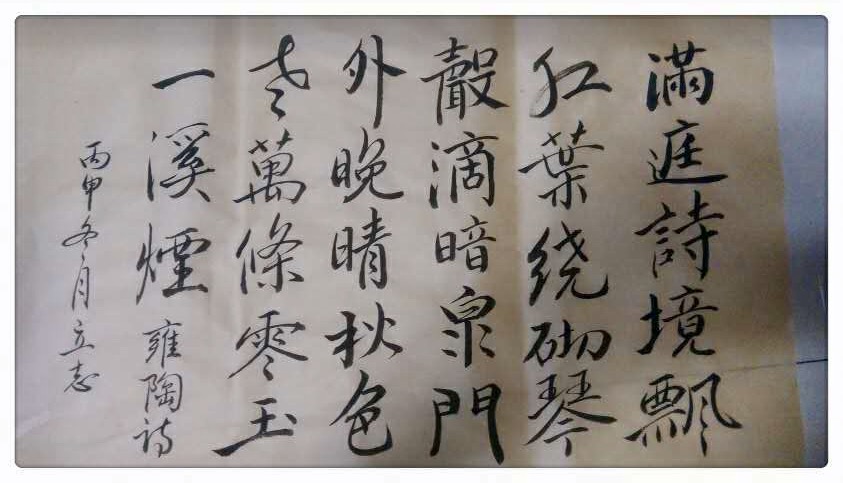 滿庭詩境飄
红葉绕砌琴
聲滴暗泉門
外晚晴秋色
老萬條零玉
一溪煙 雍陶詩
丙申冬月立志